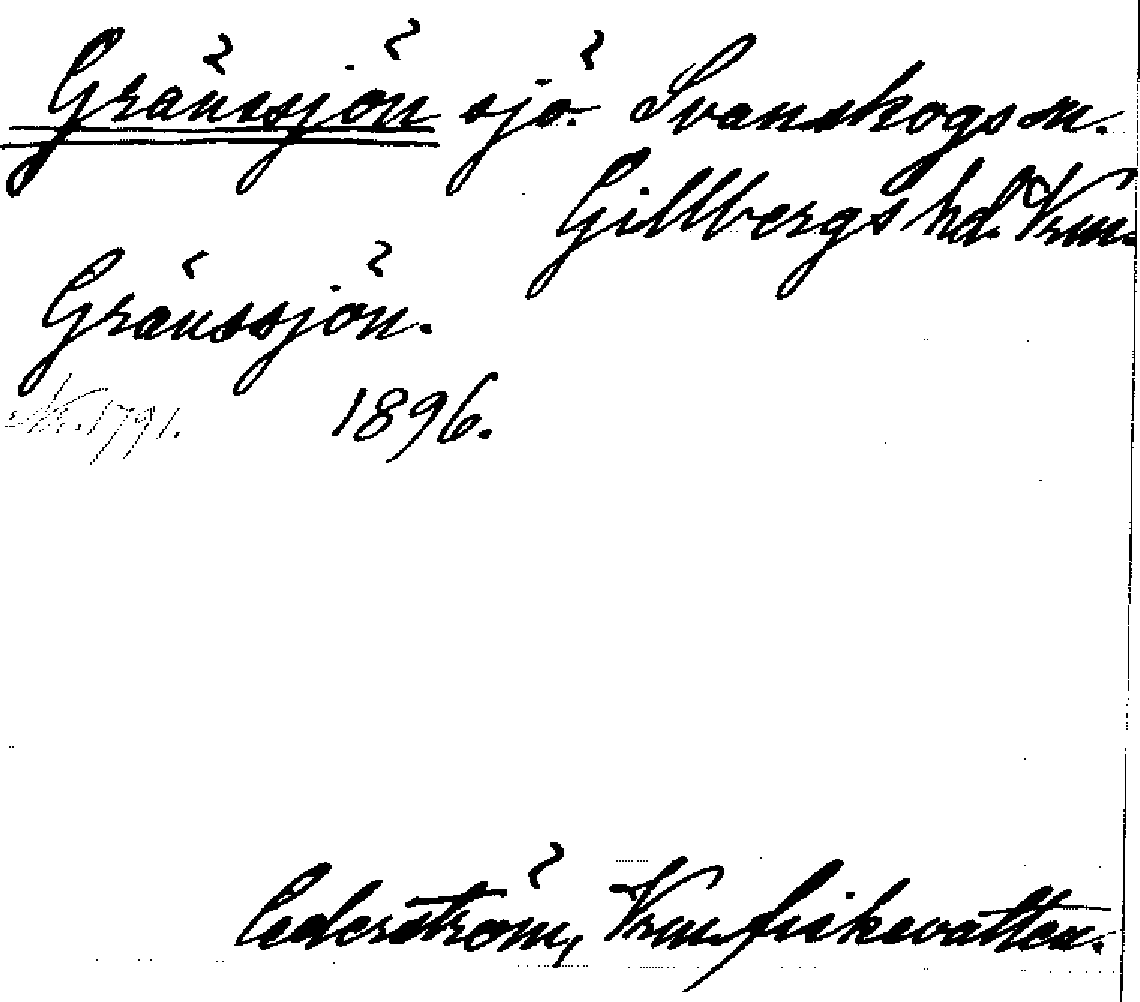 Gränssjön sjö. Svanskogs sn.
Gillbergs hd. Vrm.
Gränssjön.
1896.
Nr. 1791.
Cederström, Vrm. fiskevatten.